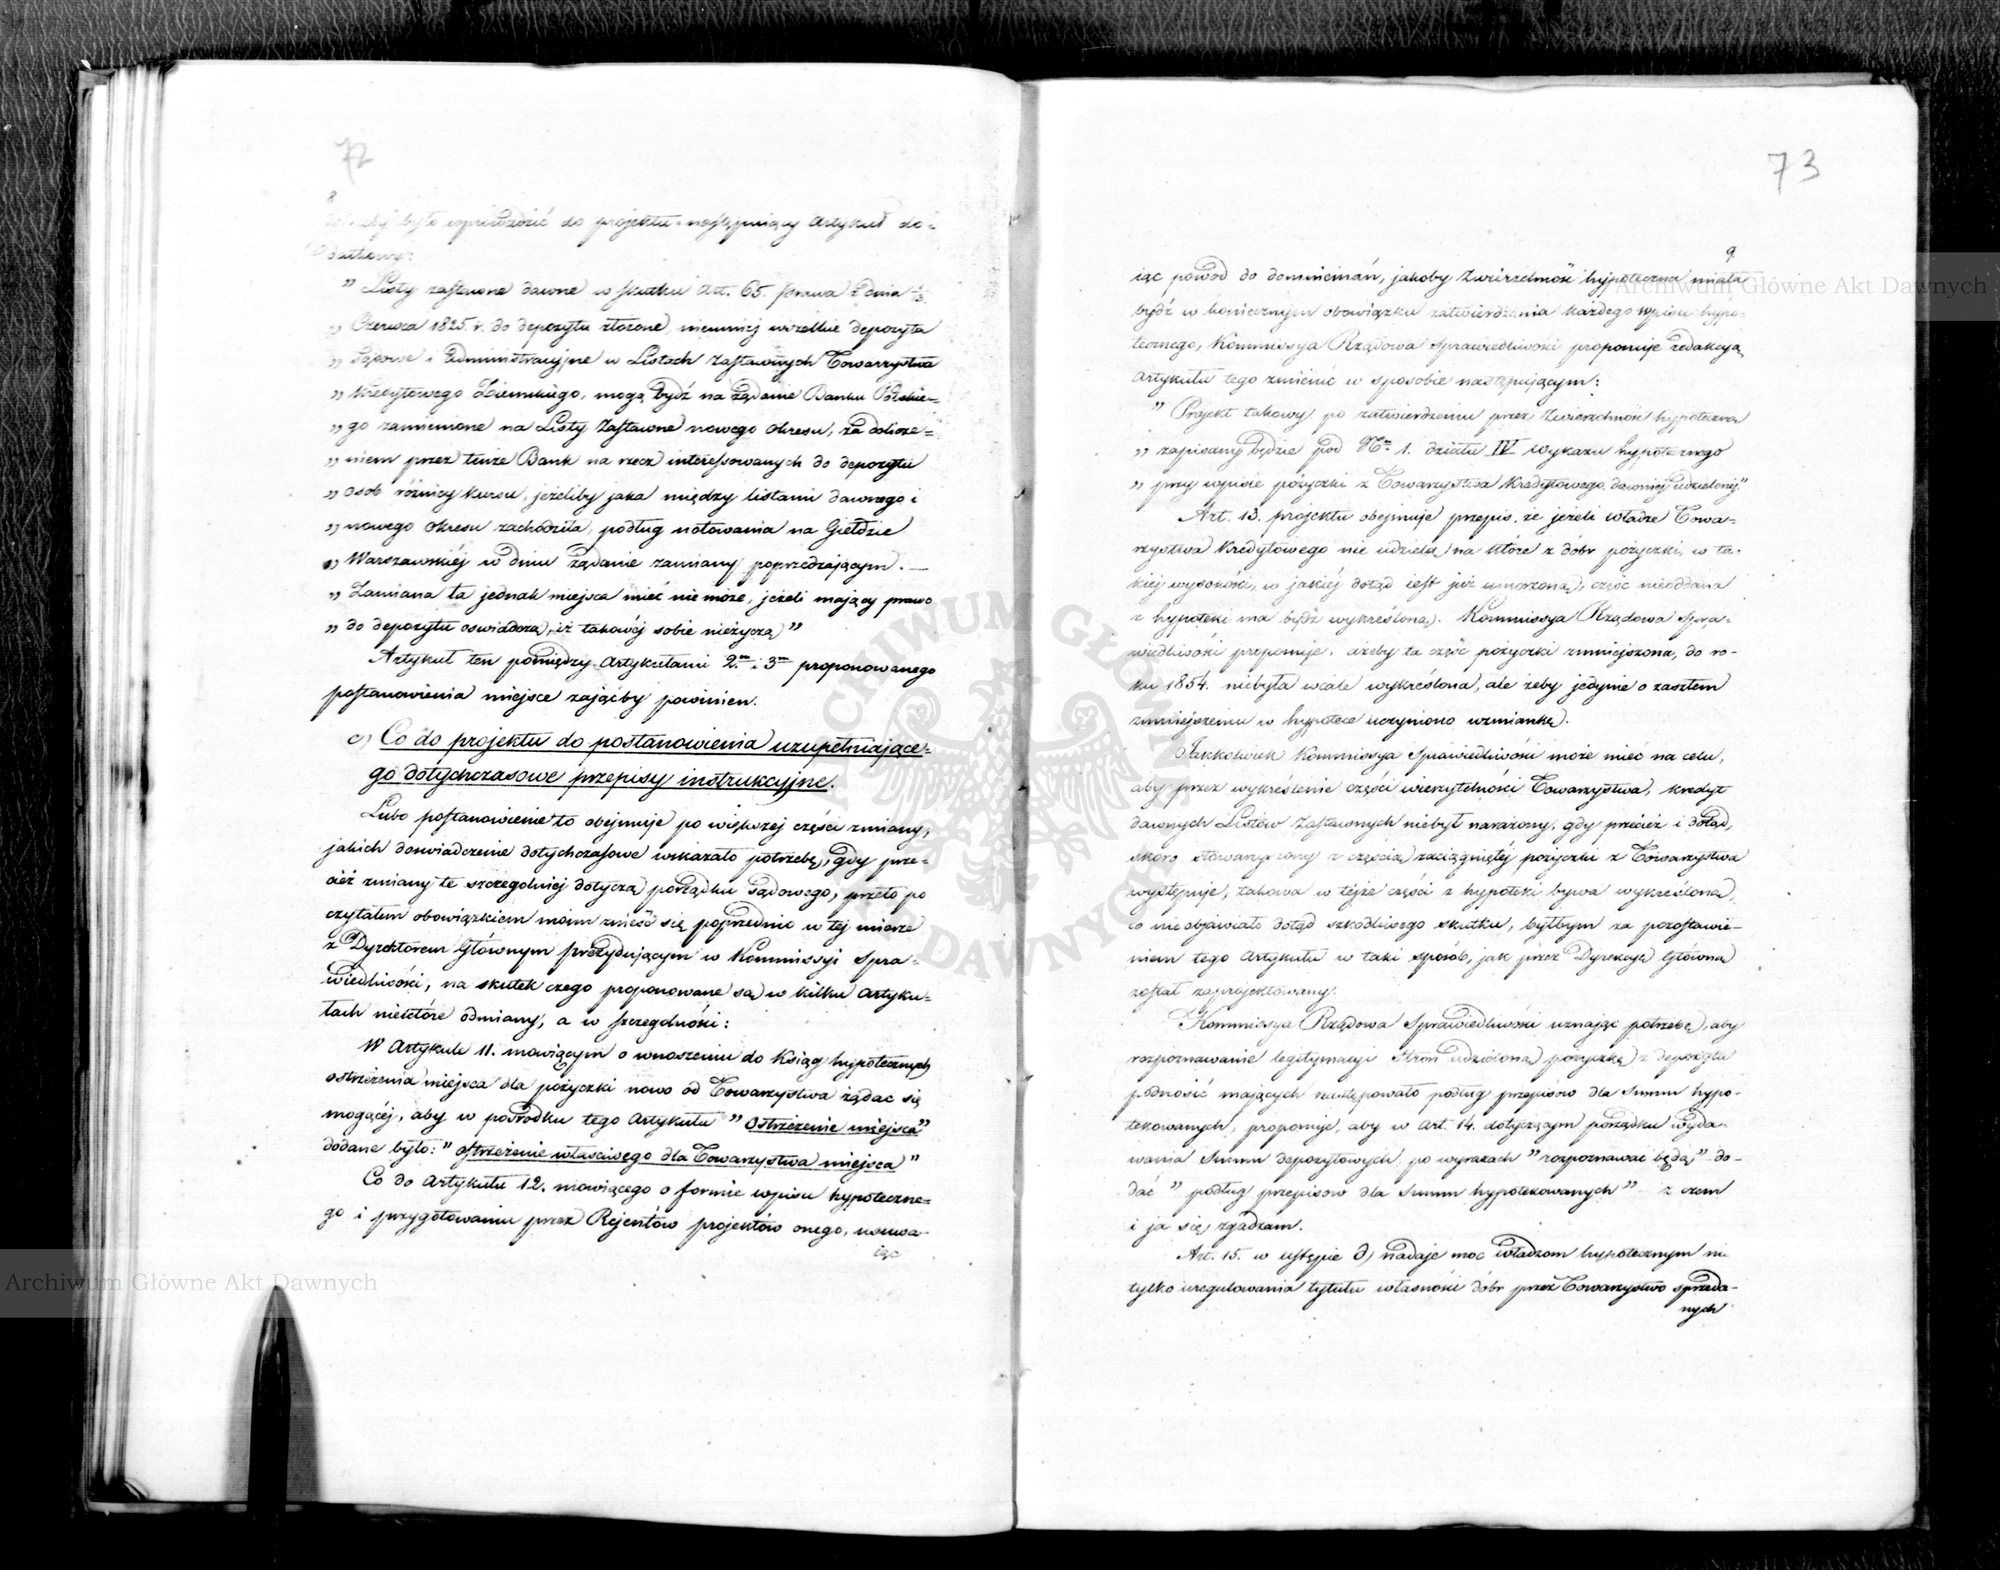 72
8
było wprowadzić do projektu następujący artykuł do-
datkowy:
" Listy zastawne dawne w skutku Art. 65. prawa z dnia 1/13.
" Czerwca 1825. r. do depozytu złożone, niemniej wszelkie depozyta
" Sądowe i Administracyjne w Listach Zastawnych Towarzystwa
" Kredytowego Ziemskiego, mogą bydź na żądanie Banku Polskie-
" go zamienione na Listy Zastawne nowego Okresu, za dołoże-
" niem przez tenże Bank na rzecz interessowanych do depozytu
" osób różnicy kursu, jeżeliby jaka między listami dawnego i
" nowego Okresu zachodziła, podług notowania na Giełdzie
" Warszawskiéj w dniu żądanie zamiany poprzedzającym. —
" Zamiana ta jednak miejsca mieć nie może, jeżeli mający prawo
" do depozytu oswiadczą, iż takowéj sobie nieżyczą"
Artykuł ten pomiędzy Artykułami 2m i 3m proponowanego
postanowienia miejsce zająćby powinien.
c) Co do projektu do postanowienia uzupełniające-
go dotychczasowe przepisy instrukcyjne.
Lubo postanowienie to obejmuje po większej części zmiany,
jakich doswiadczenie dotychczasowe wskazało potrzebę, gdy prze-
cież zmiany te szczegolniej dotyczą porządku Sądowego, przeto po
czytałem obowiązkiem moim znieść się poprzednio w téj mierze
z Dyrektorem Głównym prezydującym w Kommissyi Spra-
wiedliwości, na skutek czego proponowane są w kilku Artyku-
łach niektóre odmiany, a w szczegolności:
W Artykule 11. mowiącym o wnoszeniu do Ksiąg hypotecznych
ostrzeżenia miejsca dla pożyczki nowo od Towarzystwa żądać się
mogącéj, aby w pośrodku tego Artykułu " Ostrzeżenie miejsca"
dodane było: " ostrzeżenie własciwego dla Towarzystwa miejsca "
Co do Artykułu 12. mowiącego o formie wpisu hypoteczne-
go i przygotowaniu przez Rejentów projektów onego, usuwa-
iąc
73
9
iąc powod do domniemań, jakoby Zwierzchność hypoteczna miała
bydź w koniecznym obowiązku zatwierdzania każdego wpisu hypo-
tecznego, Kommissya Rządowa Sprawiedliwości proponuje redakcyą
Artykułu tego zmienić w sposobie następującym:
" Projekt takowy po zatwierdzeniu przez Zwierzchność hypoteczną
" zapisany będzie pod Nm 1. działu IV wykazu hypotecznego
" przy wpisie pożyczki z Towarzystwa Kredytowego dawniej udzielonej."
Art. 13. projektu obejmuje przepis, że jeżeli władze Towa-
rzystwa Kredytowego nie udzielą na które z dóbr pożyczki, w ta-
kiéj wysokości, w jakiéj dotąd iest już umorzoną, częsc nieoddana
z hypoteki ma bydź wykreśloną. Kommissya Rządowa Spra-
wiedliwości proponuje, ażeby ta część pożyczki zmniejszona, do ro-
ku 1854. niebyła wcale wykreślona, ale żeby jedynie o zaszłem
zmniejszeniu w hypotece uczyniono wzmiankę.
Jakkolwiek Kommissya Sprawiedliwości może mieć na celu,
aby przez wykreślenie części wierzytelności Towarzystwa, kredyt
dawnych Listów Zastawnych niebył narażony, gdy przecież i dotąd,
skoro stowarzyszony z częscią zaciągniętéj pożyczki z Towarzystwa
występuje, takowa w tejże części z hypoteki bywa wykreśloną,
co nie objawiało dotąd szkodliwego skutku, byłbym za pozostawie-
niem tego Artykułu w taki sposób, jak przez Dyrekcyą Główną
został zaprojektowany.
Kommissya Rządowa Sprawiedliwości uznając potrzebę, aby
rozpoznawanie legitymacyi Stron udzieloną pożyczkę z depozytu
podnosić mających następowało podług przepisów dla Summ hypo-
tekowanych, proponuje, aby w Art. 14. dotyczącym porządku wyda-
wania Summ depozytowych, po wyrazach " rozpoznawać będą" do-
dać " podług przepisow dla Summ hypotekowanych" z czem
i ja się zgadzam.
Art. 15. w ustępie d) nadaje moc władzom hypotecznym nie
tylko uregulowania tytułu własności dóbr przez Towarzystwo sprzeda-
nych